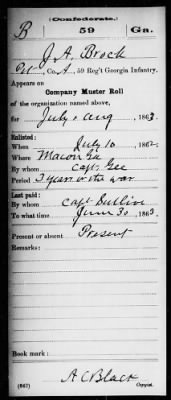 (Confederate.)
B 59 Ga.
J. A. Brock
Pvt, Co. A, 59 Reg't Georgia Infantry.
Appears on
Company Muster Roll
of the organization named above,
for July & Aug, 1863.
Enlisted:
When July 10, 1862.
Where Macon Ga
By whom Capt. Gee
Period 3 years or the war
Last paid:
By whom Capt
To what time June 30, 1863.
Present or absent Present
Remarks:
Book mark:
(667) A C Black
Copyist.